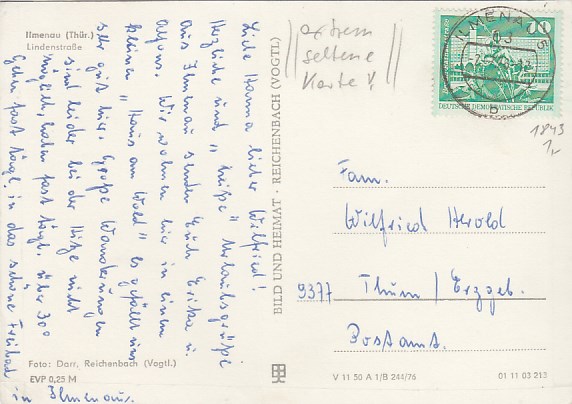 Ilmenau (Thür.)
Lindenstraße
Liebe Hanna lieber Wilfried!
Herzliche und "heiße" Urlaubsgrüße
aus Ilmenau senden Euch Erika u.
Alfons. Wir wohnen hier in einem
kleinen "Haus am Wald" es gefällt uns
sehr gut hier. Große Wanderungen
sind leider bei der Hitze nicht
möglich, haben fast tägl. über 30°
Gehn fast tägl. in das schöne Freibad
in Ilmenau.
Foto: Darr, Reichenbach (Vogtl.)
EVP 0,25 M
BILD UND HEIMAT · REICHENBACH (VOGTL)
extrem
seltene
Karte!
ILMENAU 5
DEUTSCHE DEMOKRATISCHE REPUBLIK
b
1843
1,-
Fam.
Wilfried Herold
9377 Thum / Erzgeb.
Postamt.
V 11 50 A 1/B 244/76
01 11 03 213